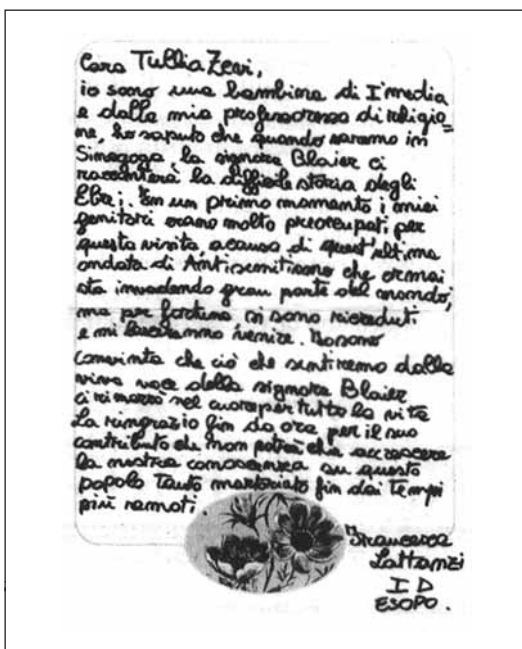 Cara Tullia Zevi,
io sono una bambina di I media
e dalla mia professoressa di religio=
ne, ho saputo che quando saremo in
Sinagoga, la signora Blaier ci
racconterà la difficile storia degli
Ebrei. In un primo momento i miei
genitori erano molto preoccupati per
questa visita, a causa di quest'ultima
ondata di Antisemitismo che ormai
sta invadendo gran parte del mondo;
ma per fortuna si sono ricreduti
e mi lasceranno venire. Io sono
convinta che ciò che sentiremo dalla
viva voce della signora Blaier
ci rimarrà nel cuore per tutta la vita
La ringrazio fin da ora per il suo
contributo che non potrà che accrescere
la nostra conoscenza su questo
popolo tanto martoriato fin dai tempi
più remoti
Francesca
Lattanzi
I D
ESOPO.